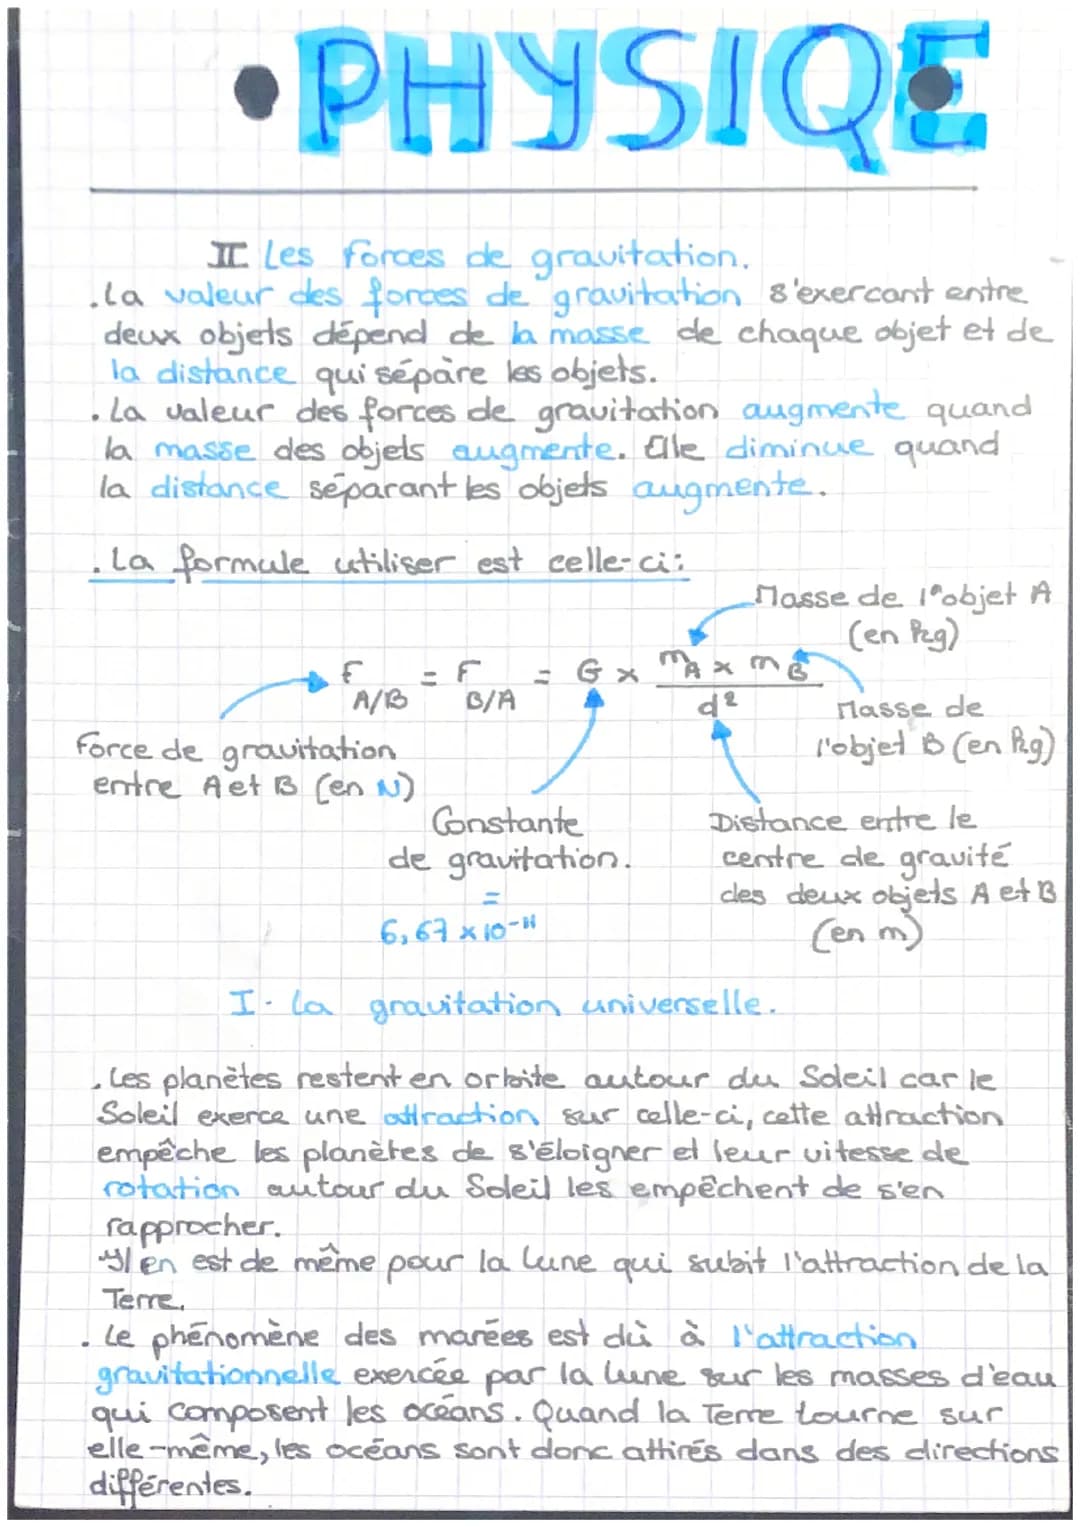 • PHYSIQE
II Les forces de gravitation.
. La valeur des forces de gravitation s'exercant entre
deux objets dépend de la masse de chaque objet et de
la distance qui sépàre les objets.
. La valeur des forces de gravitation augmente quand
la masse des objets augmente. Elle diminue quand
la distance séparant les objets augmente.
. La formule utiliser est celle-ci:
Masse de l'objet A
(en kg)
F A/B = F B/A = G × (mA × mB) / d²
Masse de
l'objet B (en kg)
Force de gravitation
entre A et B (en N)
Constante
de gravitation.
=
6,67 × 10⁻¹¹
Distance entre le
centre de gravité
des deux objets A et B
(en m)
I - La gravitation universelle.
. Les planètes restent en orbite autour du Soleil car le
Soleil exerce une attraction sur celle-ci, cette attraction
empêche les planètes de s'éloigner et leur vitesse de
rotation autour du Soleil les empêchent de s'en
rapprocher.
Il en est de même pour la lune qui subit l'attraction de la
Terre.
. Le phénomène des marées est dù à l'attraction
gravitationnelle exercée par la lune sur les masses d'eau
qui composent les océans. Quand la Terre tourne sur
elle-même, les océans sont donc attirés dans des directions
différentes.